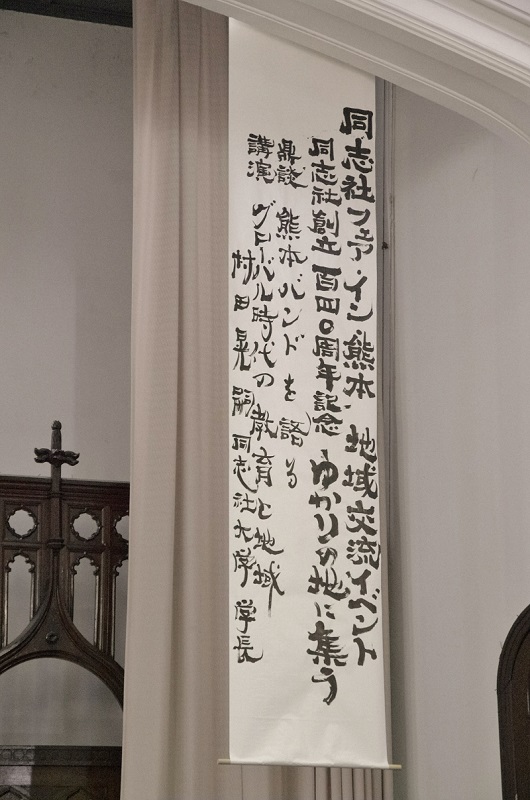 同志社フェア・イン・熊本・地域交流イベント
同志社創立百四〇周年記念 ゆかりの地に集う
鼎談 熊本バンドを語る
講演 グローバル時代の教育と地域
村田晃嗣 同志社大学 学長